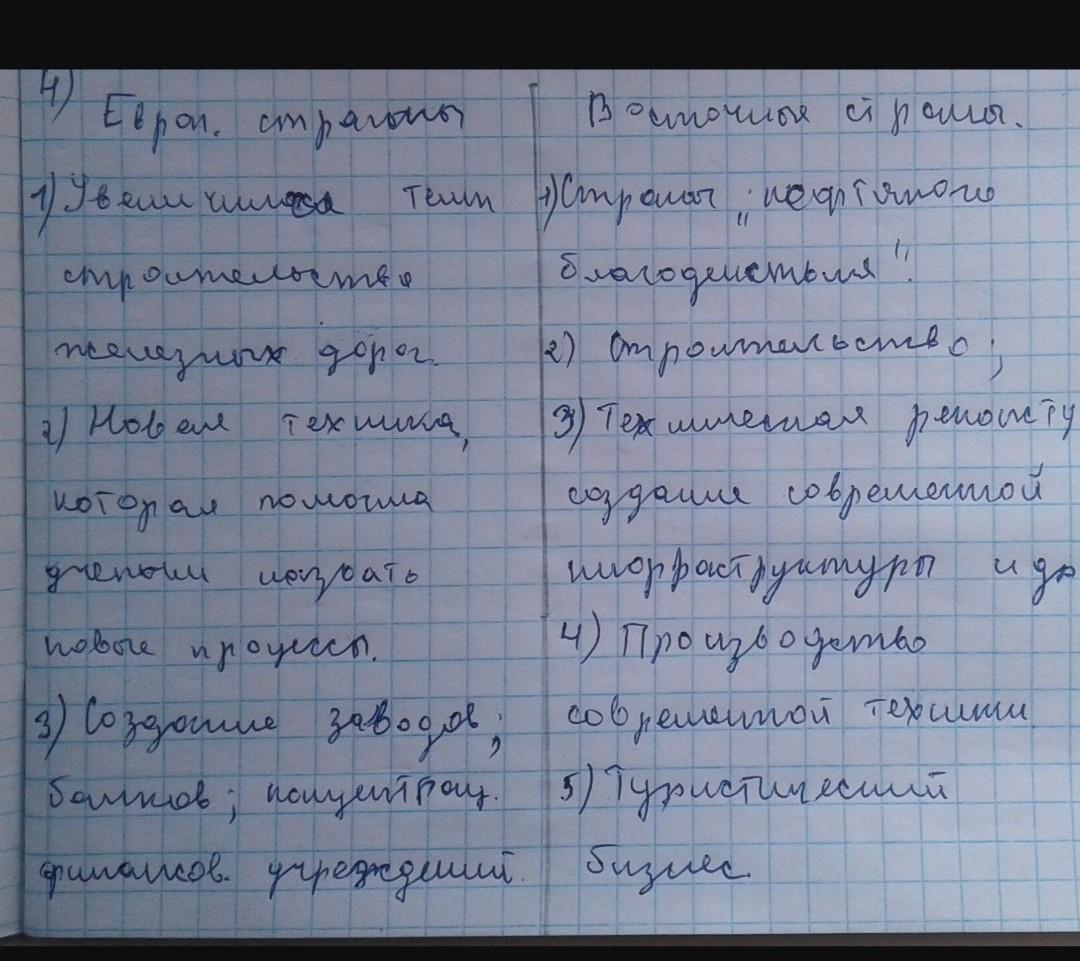 4)
Европ. страны
1) Увеличился темп
строительства
железных дорог.
2) Новая техника,
которая помогла
ученым создать
новые процессы.
3) Создание заводов;
банков; концентрац.
финансов. учреждений.
Восточные страны.
1) Страны „нефтяного
благоденствия".
2) Строительство;
3) Техническая
создание современной
инфраструктуры и др
4) Производство
современной техники
5) Туристический
бизнес.